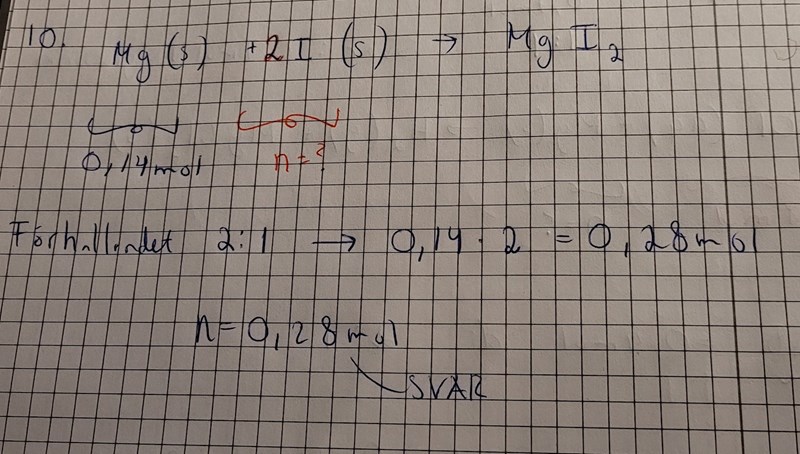 10. Mg (s) + 2 I (s) → Mg I₂
0,14 mol n = ?
Förhållandet 2:1 → 0,14 · 2 = 0,28 mol
n = 0,28 mol
SVAR